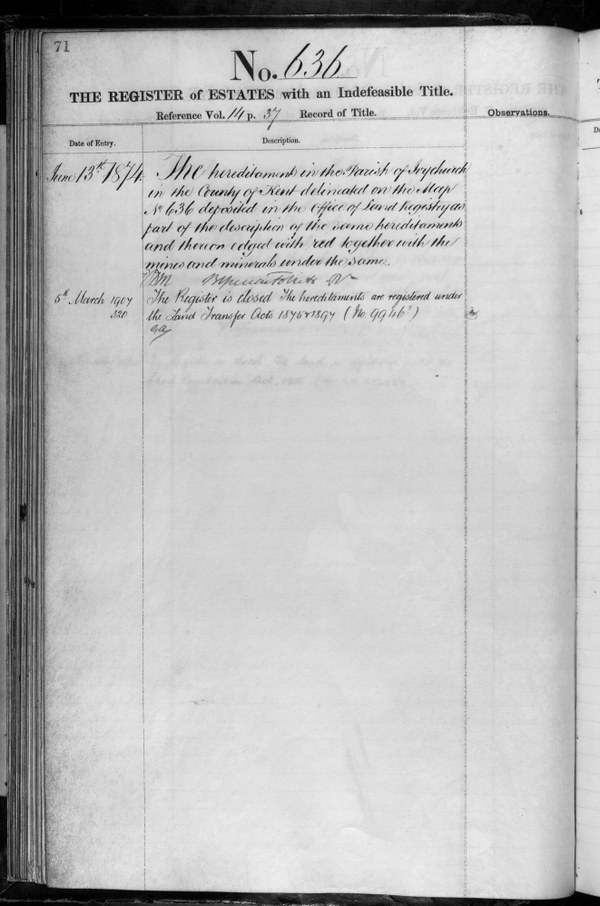 71
No. 636
THE REGISTER of ESTATES with an Indefeasible Title.
Reference Vol. 14 p. 37 Record of Title.
Observations.
Date of Entry.
Description.
June 13th 1874.
The hereditaments in the Parish of Ivychurch
in the County of Kent delineated on the Map
No 636 deposited in the Office of Land Registry as
part of the description of the same hereditaments
and thereon edged with red together with the
mines and minerals under the same.
5th March 1907
320
The Register is closed The hereditaments are registered under
the Land Transfer Acts 1875 & 1897